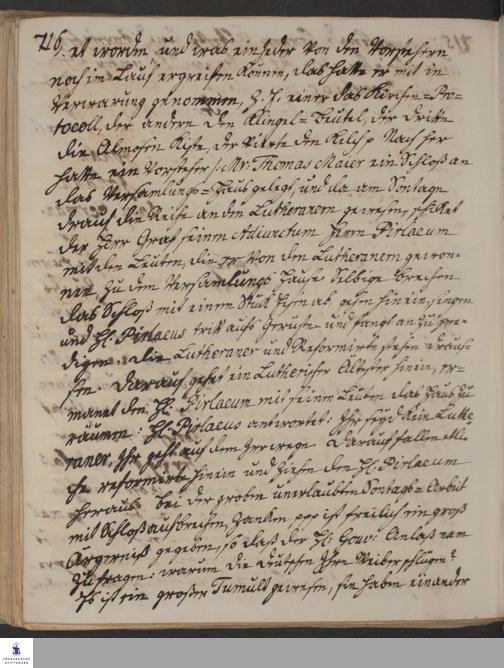 716. et worden und was ein jeder von den Vorstehern
noch im Lauf ergreiffen können, das hatte er mit in
Verwarung genommen, z. E. einer das Kirchen-Pro-
tocoll, der andere den Klingel-Beutel, der dritte
die Almosen Kiste, der vierte den Kelch p Nachher
hatte ein Vorsteher /: Mr. Thomas Maier ein Schloß an
das Versamlungs-Haus gelegt, und da am Sontage
drauf die Reihe an den Lutheranern gewesen, schicket
der Herr Graf seinen Adiunctum Herrn Pirlaeum
mit den Leuten, die er von den Lutheranern gewon-
nen, zu dem Versamlungs Hause selbige brechen
das Schloß mit einem Stück Eisen ab, gehen hinein, singen
und H. Pirlaeus tritt aufs Gerüste und fangt an zu pre-
digen. Die Lutheraner und Reformirte stehen drauß-
sen. Darauf gehet ein Lutherischer Ältester hinein, er-
manet den H. Pirlaeum mit seinen Leuten das Haus zu
räumen: H. Pirlaeus antwortet: Ihr seyd kein Luthe-
raner, Ihr geht auf dem Irrwege. Darauf fallen etli-
che reformirte hinein und ziehen den H. Pirlaeum
heraus. Bei der groben unerlaubten Sontags-Arbeit
mit Schloß ausbrechen, Zanken ppp ist freilich ein groß
Ärgerniß gegeben, so daß der H. Gouv: Anlaß nam
zu fragen: warum die Deutschen Ihre Weiber schlügen?
Es ist ein großer Tumult gewesen, sie haben einander
FRANCKESCHE
STIFTUNGEN